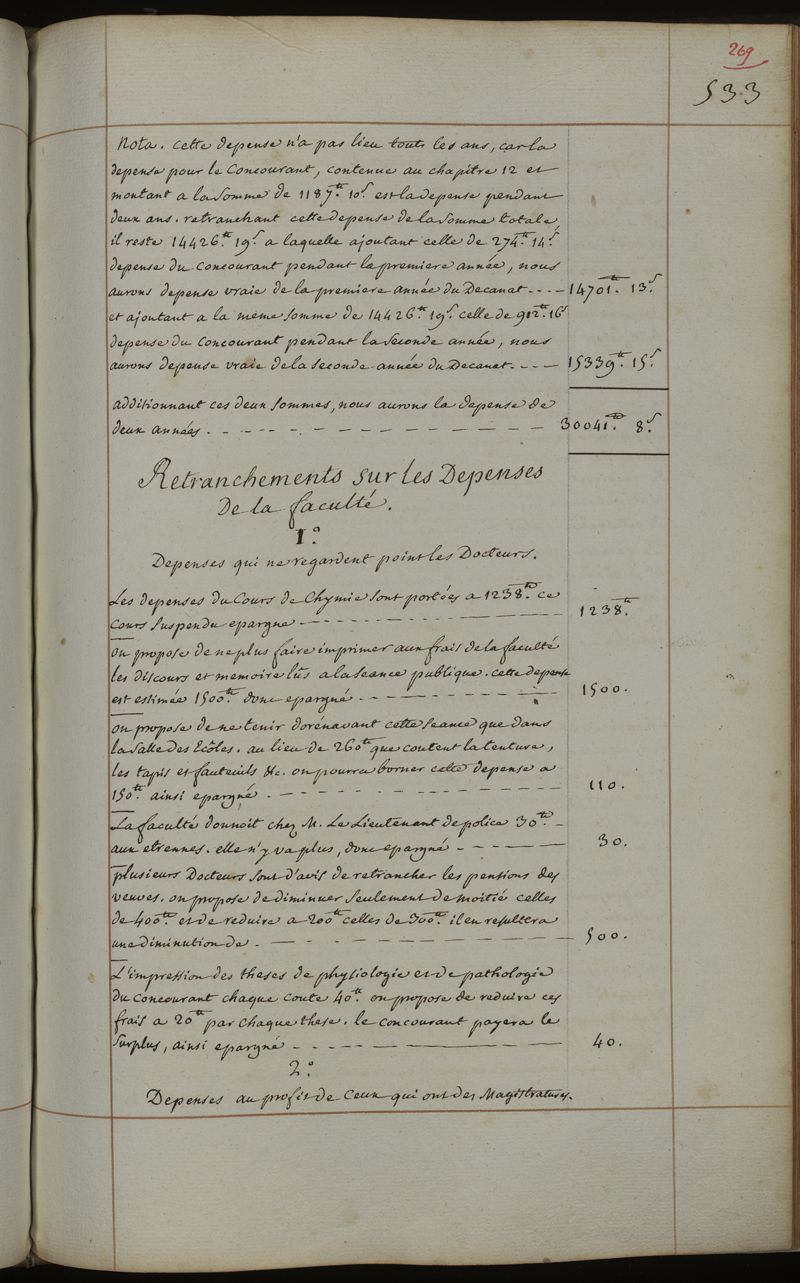 269
533
Nota. cette depense n'a pas lieu touts les ans, car la
depense pour le Concourant, contenue au chapitre 12 et
montant a la Somme de 1187.tt 10.s est la depense pendant
deux ans. retranchant cette depense de la Somme totale,
il reste 14426.tt 19.s a laquelle ajoutant celle de 274.tt 14.s
depense du Concourant pendant la premiere année, nous
aurons depense vraie de la premiere année du Decanat - - - - 14701.tt 13.s
et ajoutant a la meme Somme de 14426.tt 19.s celle de 912.tt 16.s
depense du Concourant pendant la Seconde année, nous
aurons depense vraie de la Seconde année du Decanat. - - - 15339.tt 15.s
additionnant ces deux Sommes, nous aurons la depense de
deux années. - - - - - - - - - - - - - 30041.tt 8.s
Retranchements sur les Depenses
De la faculté.
1.°
Depenses qui ne regardent point les Docteurs.
Les depenses du Cours de Chymie Sont portées a 1238.tt ce
Cours Suspendu epargne - - - - - - - - - - 1238.tt
on propose de ne plus faire imprimer aux frais de la faculté
les discours et memoire lûs a la seance publique. cette depense
est estimée 1500.tt donc epargné - - - - - - - - - 1500.
on propose de ne tenir dorénavant cette Seance que dans
la Salle des Ecôles. au lieu de 260.tt que coutent la tenture,
les tapis et fauteuils &c. on pourra borner cette depense a
150.tt ainsi epargné. - - - - - - - - - - 110.
La faculté donnoit chez M. Le Lieutenant de police 30.tt -
aux etrennes. elle n'y va plus, donc epargné - - - - - 30.
plusieurs Docteurs Sont d'avis de retrancher les pensions des
veuves. on propose de diminuer Seulement de moitié celles
de 400.tt et de reduire a 200.tt celles de 300.tt il en resultera
une diminution de. - - - - - - - - - - - 500.
L'impression des theses de physiologie et de pathologie
du Concourant chaque coute 40.tt on propose de reduire ces
frais a 20.tt par chaque these. le concourant payera le
Surplus, ainsi epargné - - - - - - - - - 40.
2.°
Depenses au profit de Ceux qui ont des Magistratures.